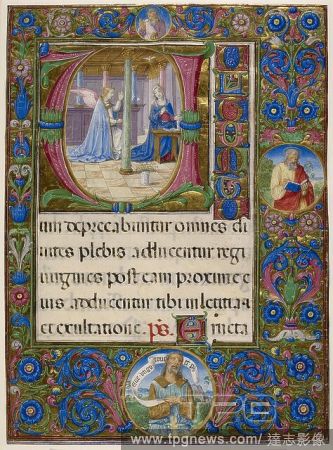 uum deprecabuntur omnes di
uites plebis adducentur regi
uirgines post eam proxime e
ius adducentur tibi in letitia
et exultatione. ps. Eructa
TPG
www.tpgnews.com / 達志影像